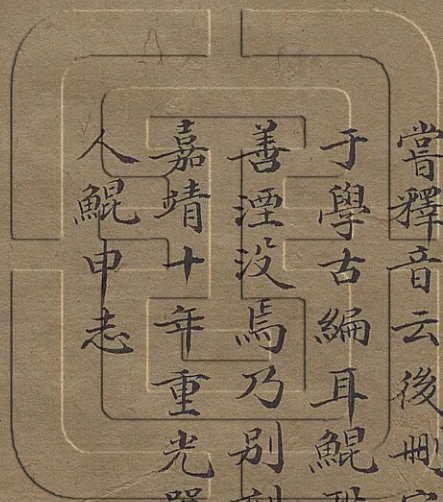 嘗釋音云後刪
于學古編耳鯤
善湮没焉乃别
嘉靖十年重光
人鯤申志